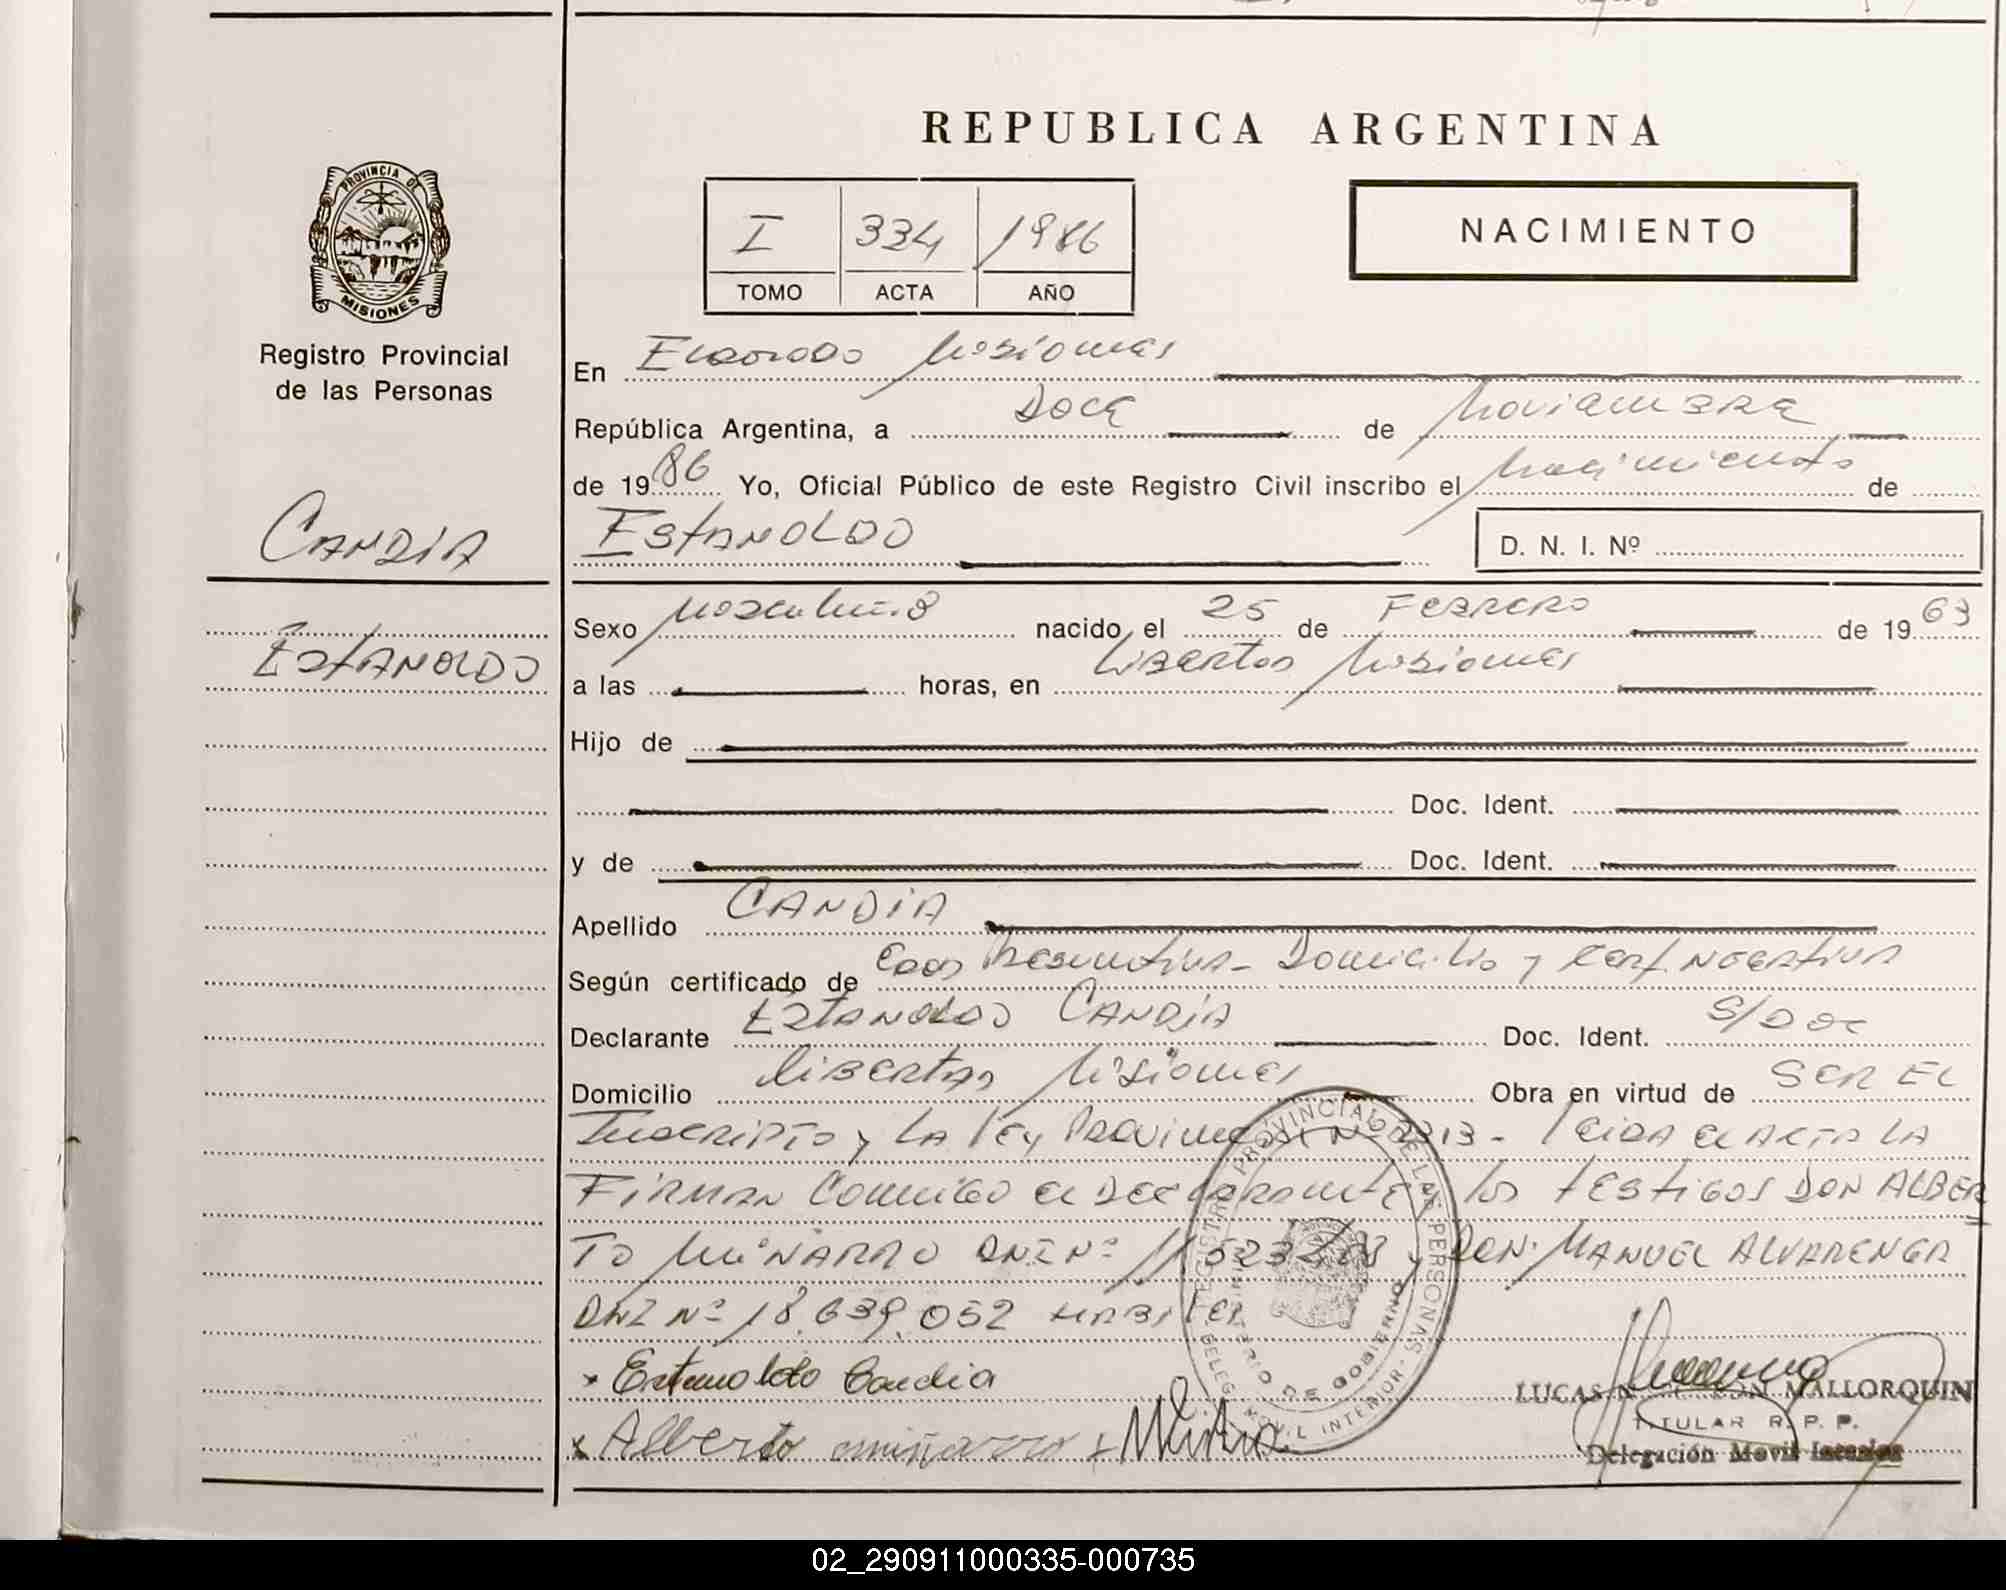 REPUBLICA ARGENTINA
PROVINCIA DE
MISIONES
Registro Provincial
de las Personas
I 334 1986
TOMO ACTA AÑO
NACIMIENTO
En Eldorado Misiones
República Argentina, a Doce de Noviembre
de 1986 Yo, Oficial Público de este Registro Civil inscribo el Nacimiento de
Candia
Estanoldo
D. N. I. Nº
Estanoldo
Sexo Masculino nacido el 25 de Febrero de 1963
a las horas, en Libertad Misiones
Hijo de
Doc. Ident.
y de Doc. Ident.
Apellido Candia
Según certificado de Edad Presuntiva - Domicilio y Cert. Negativa
Declarante Estanoldo Candia Doc. Ident. S/Doc
Domicilio Libertad Misiones Obra en virtud de Ser el
Inscripto y la Ley Provincial Nº 2313 - Leida el acta la
Firman Conmigo el Declarante y los testigos Don Alber
to Miñarro DNI Nº y Don Manuel Alvarenga
DNI Nº 18.639.052 Habiles
x Estanoldo Candia
x Alberto miñarro x
REGISTRO PROVINCIAL DE LAS PERSONAS
MINISTERIO DE GOBIERNO
DELEG. MOVIL INTERIOR
LUCAS MALLORQUIN
TITULAR R. P. P.
Delegación Movil Interior
02_290911000335-000735